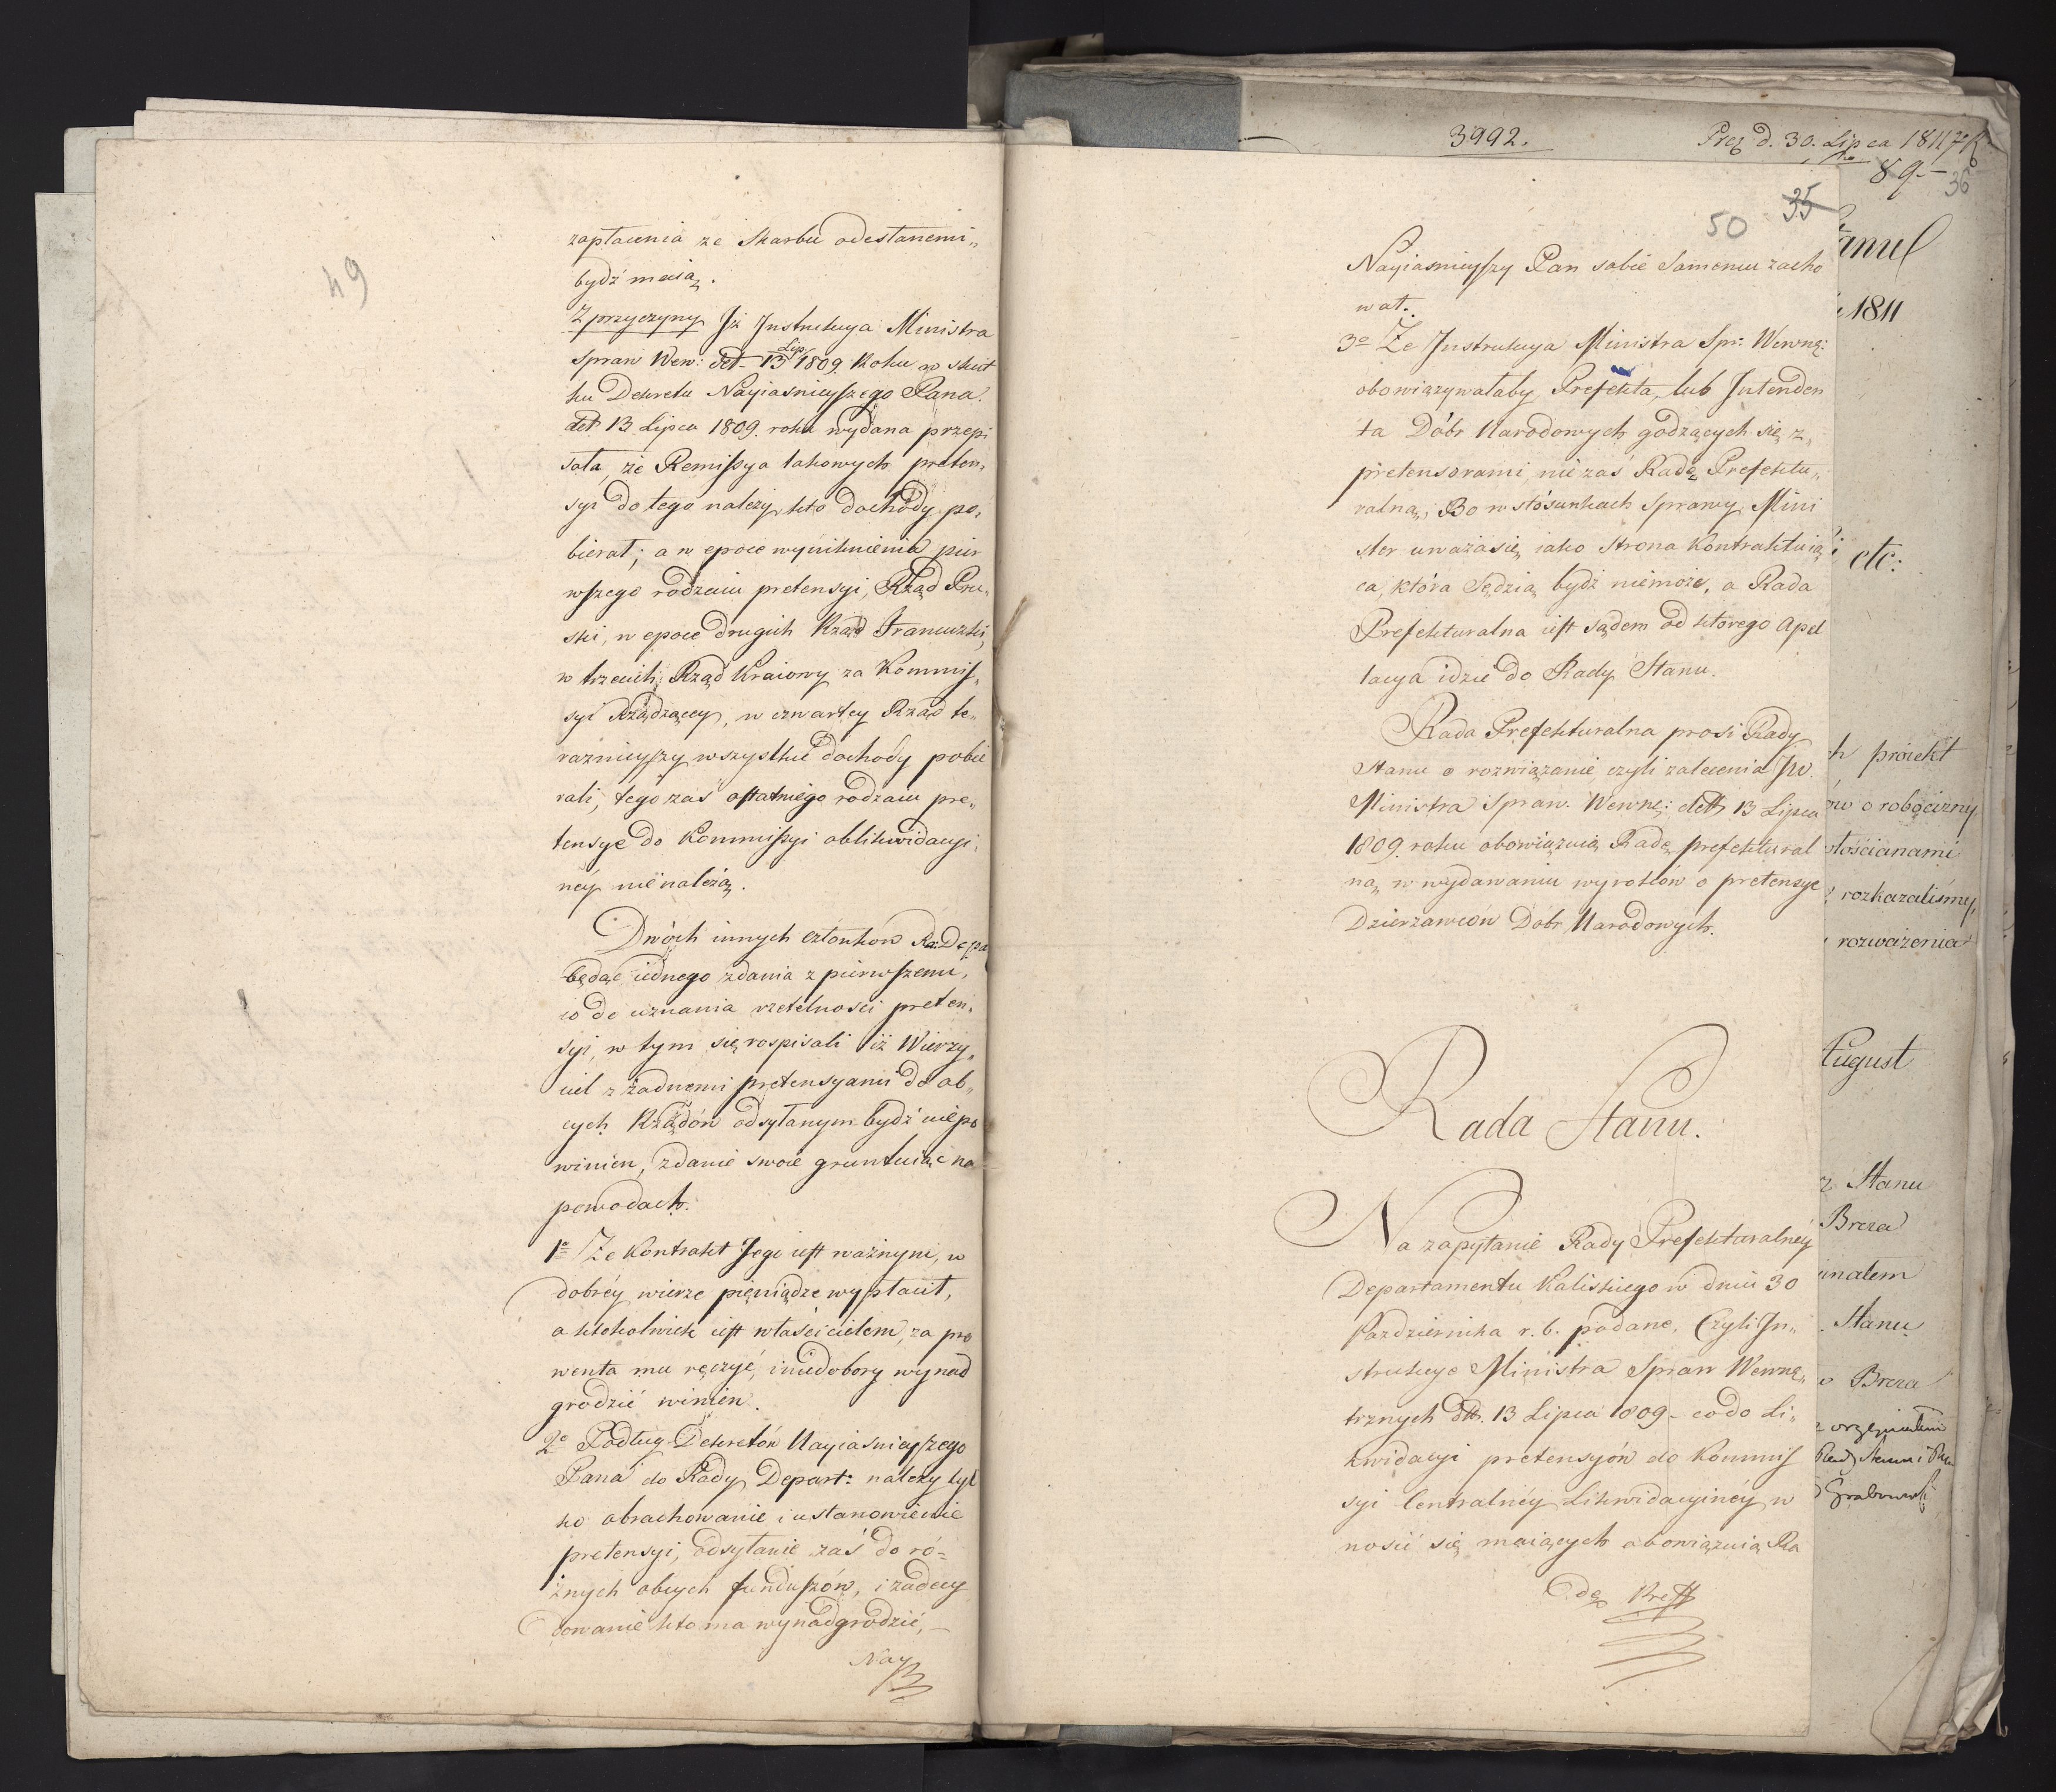 49
zapłacenia ze Skarbu odesłanemi„
bydź maią.
Z przyczyny Jż Jnstrukcya Ministra
Spraw Wew: det 13 Lip. 1809. Roku w skut
ku Dekretu Nayiasnieyszego Pana.
dett 13 Lipca 1809. roku wydana przepi
sała, że Remissya takowych preten„
syi do tego należy, kto dochody po„
bierał; a w epoce wyniknienia pier
wszego rodzaiu pretensyi, Rząd Pru„
ski, w epoce drugich Rząd Francuzki,
w trzecich, Rząd Kraiowy za Kommis„
syi Rządzącey, w czwartey Rząd te„
raznieyszy wszystkie dochody pobie
rali, tego zaś ostatniego rodzaiu pre„
tensye do Kommissyi oblikwidacyi„
néy nie należą.
Dwóch innych członków Ra: Depa
będąc iednego zdania z pierwszemu,
co do uznania rzetelności preten„
syi, w tym się rospisali iż Wierzy„
ciel z żadnemi pretensyami do ob„
cych Rządów odsyłanym bydź nie po
winien, zdanie swoie gruntuiąc na
powodach.
1o Ze Kontrakt Jego iest ważnym, w
dobréy wierze pieniądze wypłacił,
a ktokolwiek iest właścicielem, za pro
wenta mu ręczyć, i niedobory wynad
grodzić winien.
2o Podług Dekretów Nayiasnieyszego
Pana do Rady Depart: należy tyl
ko obrachowanie i ustanowienie
pretensyi, odsyłanie zaś do ró„
żnych obcych funduszów, i zadecy
dowanie kto ma wynadgrodzić, —
Nay
3992.
Prez d. 30. Lipca 1811
89.—
36
35
50
Nayiasnieyszy Pan sobie Samemu zacho
wał.
3o Ze Jnstrukcya Ministra Spr: Wewnę:
obowiązywałaby Prefekta, lub Jntenden
ta Dóbr Narodowych godzących się z„
pretensorami, nie zaś Radę Prefektu„
ralną, Bo w stósunkach Sprawy Mini
ster uważa się iako Strona Kontraktuią
ca, która Sędzią bydź niemoże, a Rada
Prefekturalna iest sądem od którego Apel
lacya idzie do Rady Stanu.
Rada Prefekturalna prosi Rady
Stanu o rozwiązanie czyli zalecenia JW.
Ministra Spraw. Wewnę: dett 13 Lipca
1809. roku obowiązuią Radę prefektural
ną w wydawaniu wyroków o pretensye
Dzierzawców Dóbr Narodowych.
Rada Stanu.
Na zapytanie Rady Prefekturalnéy
Departamentu Kaliskiego w dniu 30
Pazdziernika r. b. podane, Czyli Jn„
strukcye Ministra Spraw Wewnę„
trznych dtt. 13 Lipca 1809 – co do Li„
kwidacyi pretensyów do Kommis
syi Centralnéy Likwidacyinéy w
nosić się maiących obowiązuią Ra
dę Preff
anul
1811
etc:
proiekt
ów o robocizny
łościanami
rozkazaliśmy,
rozważenia
August
Stanu
Breza
inałem
Stanu
Breza
z orzginałem
Rady Stanu i
Grabowski